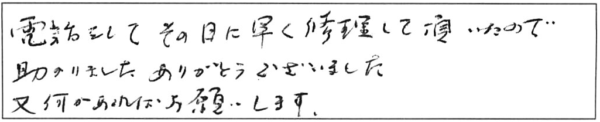 電話をして その日に早く修理して頂いたので
助かりました ありがとうございました
又何かあればお願いします。